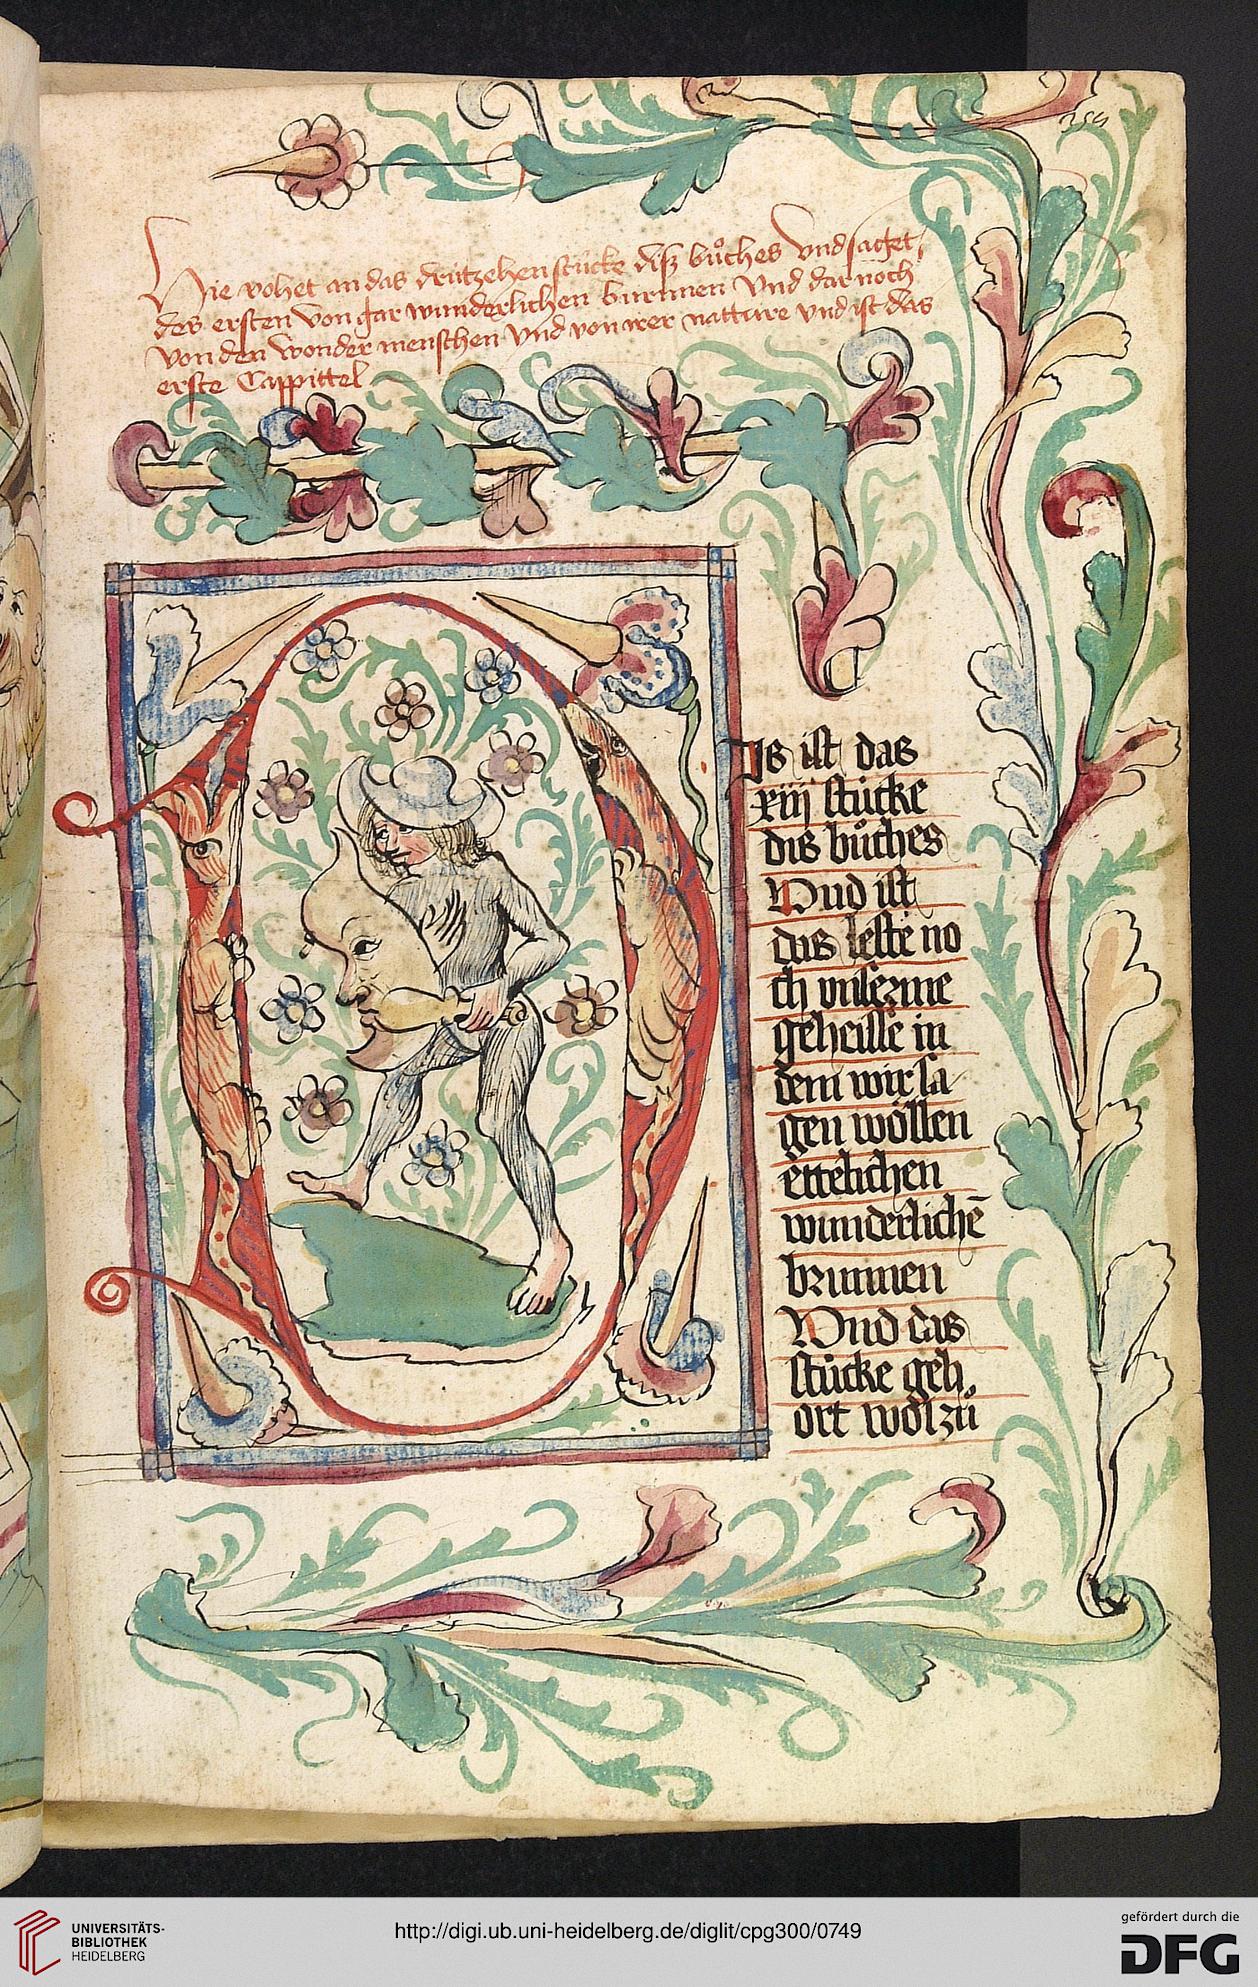 Hie vohet an das drützehen stücke disz bůches vnd saget
des ersten von gar wunderlichen burnnen vnd dar noch
von den wonder menschen vnd von irer natture vnd ist das
erste Cappittel
Dis ist das
xiij stücke
dis bůches
Vnd ist
das leste no
ch vnserme
geheisse in
dem wir sa
gen wöllen
ettelichen
wunderlichē
brunnen
Vnd das
stücke geh
ort wol zů
UNIVERSITÄTS-
BIBLIOTHEK
HEIDELBERG
http://digi.ub.uni-heidelberg.de/diglit/cpg300/0749
gefördert durch die
DFG